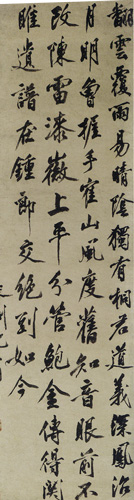 翻雲覆雨易晴陰獨有桐君道義深鳳沼
月明曾握手雀山風度舊知音眼前不
改陳雷漆徽上平分管鮑金傳得關
雎遺譜在鍾郢交絕到如今